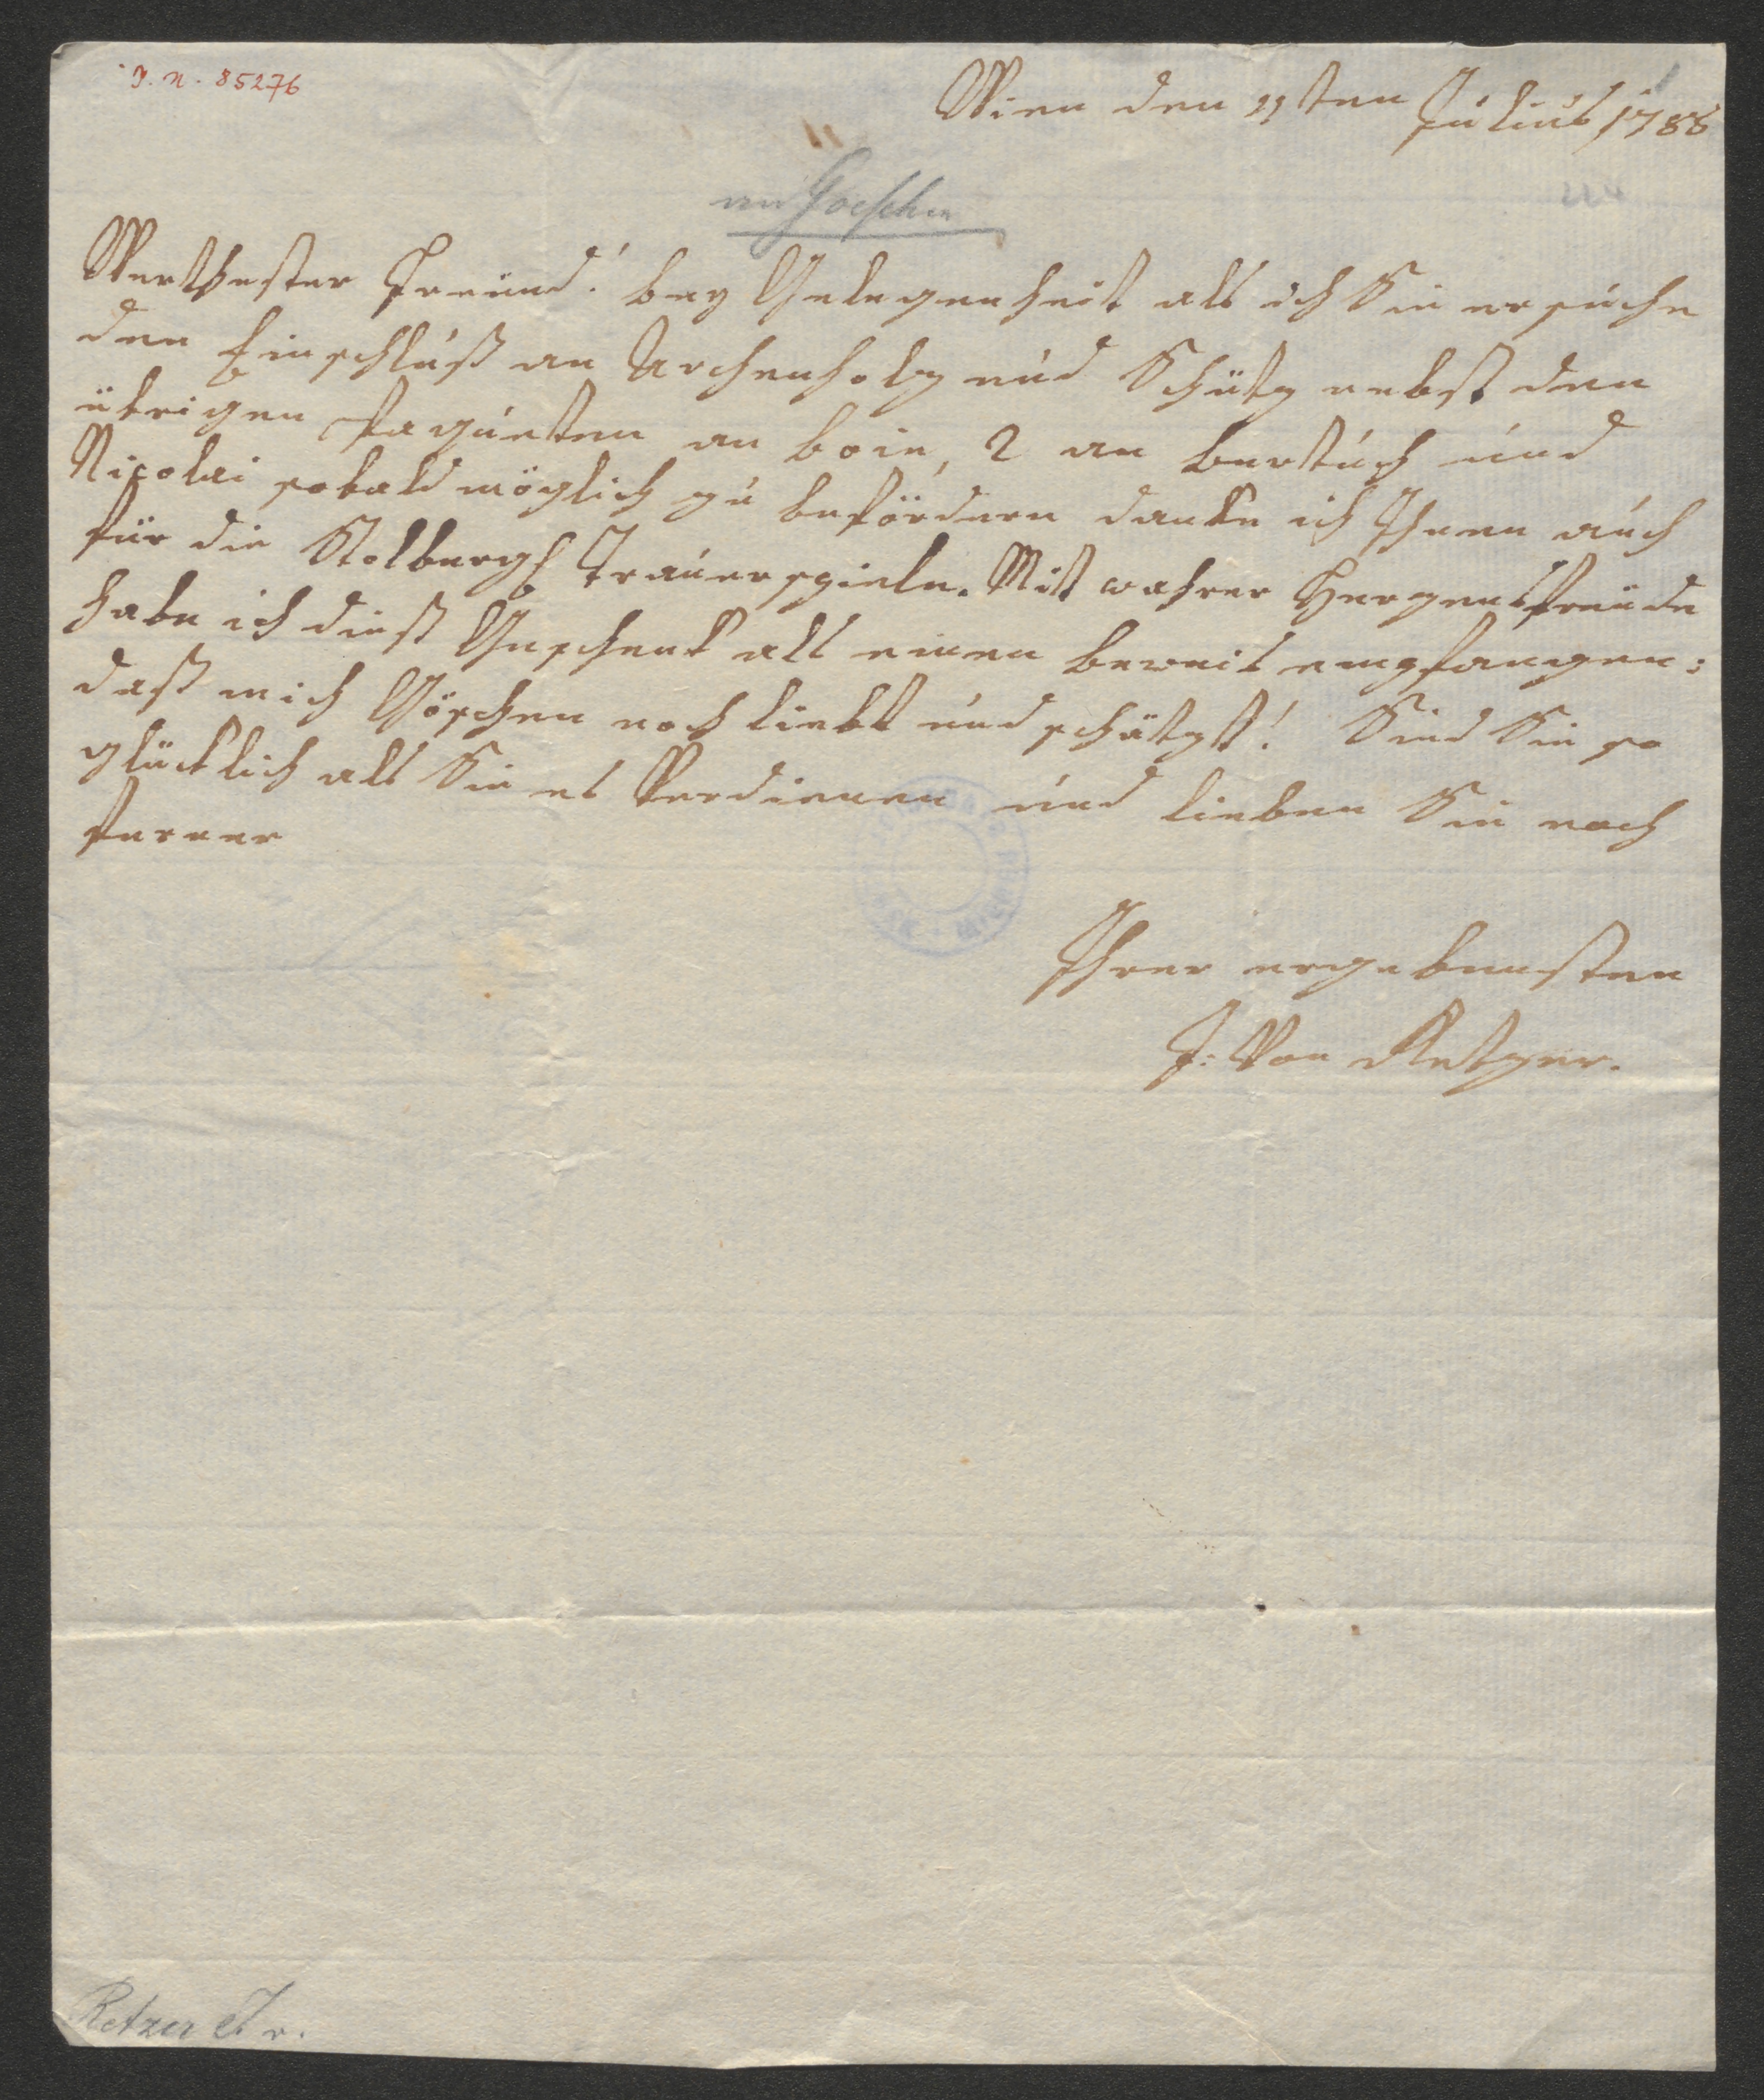 I. N. 85276
Wien den 11ten Julius 1788
an Goeschen
Werthester Freund! bey Gelegenheit als ich Sie ersuche
den Einschluß an Archenholz und Schütz nebst den
übrigen Paqueten an Boie, 2 an Bertuch und
Nicolai sobald möglich zu befördern danke ich Ihnen auch
für die Stolberg Trauerspiele. Mit wahrer Herzensfreude
habe ich dieß Geschenk als einen Beweis empfangen:
daß mich Göschen noch liebt und schätzt! Sind Sie so
glücklich als Sie es Verdienen und lieben Sie noch
ferner
Ihren ergebensten
J: Von Retzer.
Retzer J v.